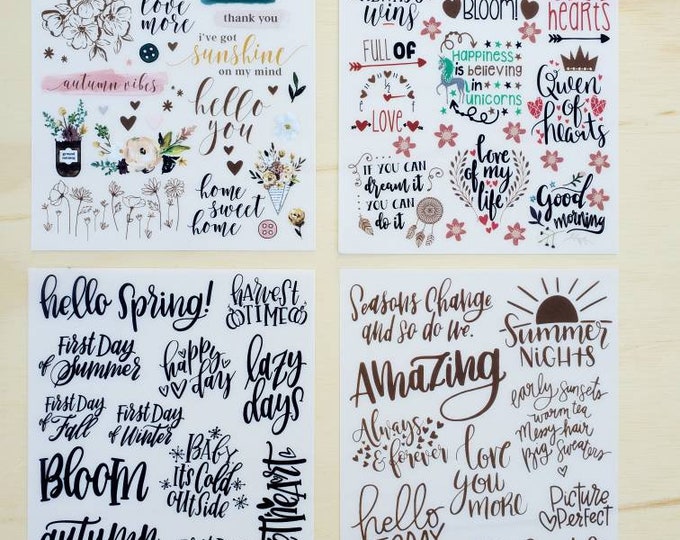 love
more
thank you
i've got
sunshine
on my mind
autumn vibes
hello
you
home
sweet
home
wins
BLOOM!
hearts
FULL OF
LOVE
Happiness
is believing
in
unicorns
Queen
of
hearts
IF YOU CAN
dream it
YOU CAN
do it
love
of my
life
Good
morning
hello Spring!
HARVEST
TIME
First Day
of Summer
happy
day
lazy
days
First Day
of Fall
First Day
of Winter
BLOOM
BABY
It's Cold
outside
autumn
Seasons Change
and so do we.
Summer
NIGHTS
AMAZING
early sunsets
warm tea
messy hair
Big Sweaters
Always
& forever
love
you
more
Picture
Perfect
hello